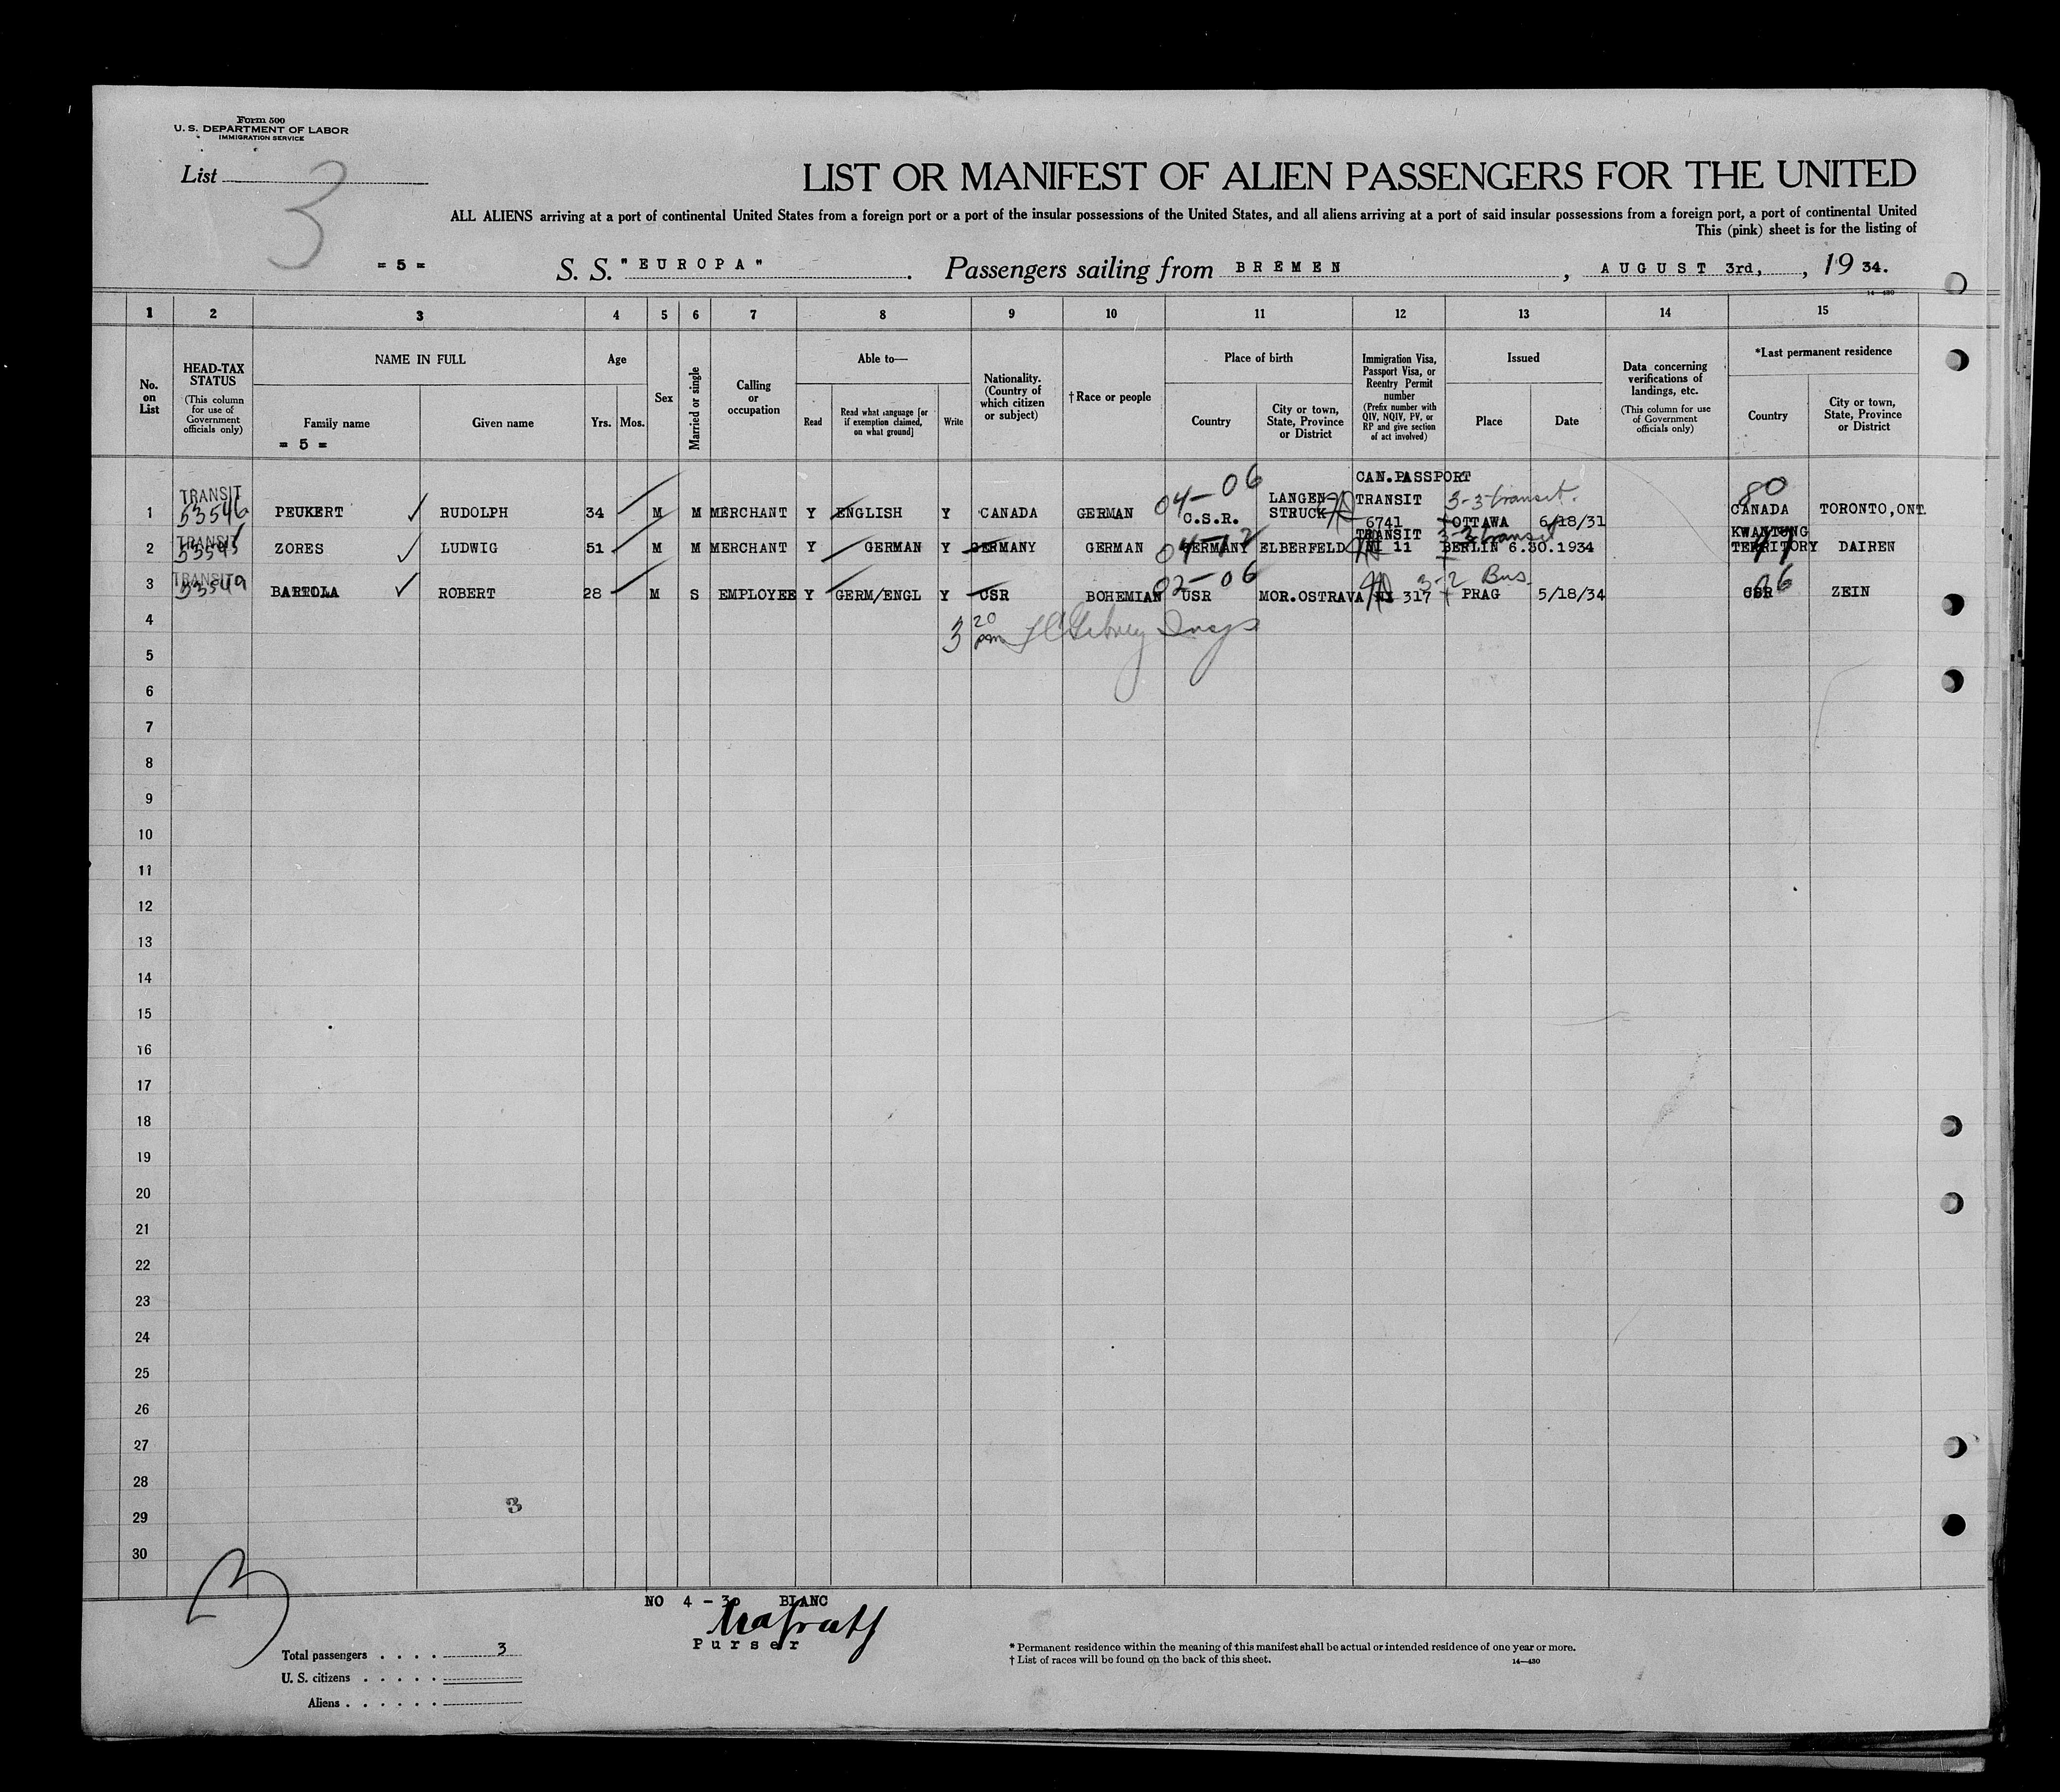 Form 500
U. S. DEPARTMENT OF LABOR
IMMIGRATION SERVICE
List
3
LIST OR MANIFEST OF ALIEN PASSENGERS FOR THE UNITED
ALL ALIENS arriving at a port of continental United States from a foreign port or a port of the insular possessions of the United States, and all aliens arriving at a port of said insular possessions from a foreign port, a port of continental United
This (pink) sheet is for the listing of
= 5 = S. S. "EUROPA". Passengers sailing from BREMEN, AUGUST 3rd, , 19 34.
14—430
1 2 3 4 5 6 7 8 9 10 11 12 13 14 15
No. on List
HEAD-TAX STATUS (This column for use of Government officials only)
NAME IN FULL
Family name
= 5 =
Given name
Age
Yrs. Mos.
Sex
Married or single
Calling or occupation
Able to—
Read
Read what language [or if exemption claimed, on what ground]
Write
Nationality. (Country of which citizen or subject)
†Race or people
Place of birth
Country
City or town, State, Province or District
Immigration Visa, Passport Visa, or Reentry Permit number (Prefix number with QIV, NQIV, PV, or RP and give section of act involved)
Issued
Place
Date
Data concerning verifications of landings, etc. (This column for use of Government officials only)
*Last permanent residence
Country
City or town, State, Province or District
CAN.PASSPORT
1 TRANSIT 53546 PEUKERT RUDOLPH 34 M M MERCHANT Y ENGLISH Y CANADA GERMAN 04-06 C.S.R. LANGEN-STRUCK TRANSIT 6741 3-3 transit. OTTAWA 6/18/31 80 CANADA TORONTO,ONT.
2 TRANSIT 53545 ZORES LUDWIG 51 M M MERCHANT Y GERMAN Y GERMANY GERMAN 04-12 GERMANY ELBERFELD TRANSIT NI 11 3-3 transit BERLIN 6.30.1934 KWANTUNG TERRITORY DAIREN
3 TRANSIT BARTOLA ROBERT 28 M S EMPLOYEE Y GERM/ENGL Y CSR BOHEMIAN 02-06 CSR MOR.OSTRAVA NI 317 3-2 Bus. PRAG 5/18/34 CSR ZEIN
4 3 20 pm
5
6
7
8
9
10
11
12
13
14
15
16
17
18
19
20
21
22
23
24
25
26
27
28
29 3
30
3
NO 4 - 30 BLANC
Purser
Total passengers . . . . 3
U. S. citizens . . . . .
Aliens . . . . . .
* Permanent residence within the meaning of this manifest shall be actual or intended residence of one year or more.
† List of races will be found on the back of this sheet.
14—430